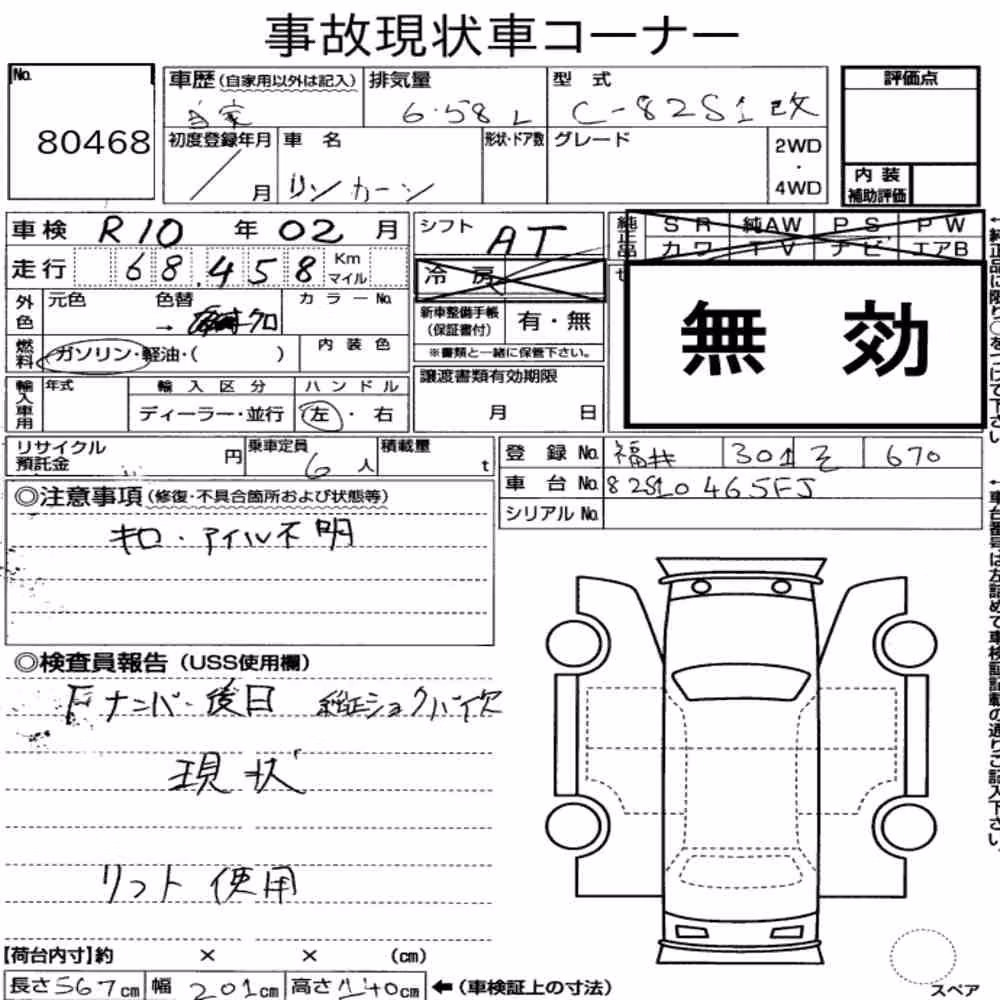 事故現状車コーナー
No. 80468
車歴(自家用以外は記入) 自家
排気量 6.58 L
型式 C-82S1改
評価点
初度登録年月 / 月
車名 リンカーン
形状・ドア数
グレード
2WD・4WD
内装補助評価
車検 R10 年 02 月
シフト AT
純正品 SR 純AW PS PW
カワ TV ナビ エアB
走行 68,458 Km マイル
冷房
無効
外色 元色 色替 → クロ
カラーNo.
新車整備手帳(保証書付) 有・無
※書類と一緒に保管下さい。
燃料 ガソリン・軽油・( )
内装色
譲渡書類有効期限 月 日
輸入車用 年式 輸入区分 ハンドル
ディーラー・並行 左・右
リサイクル預託金 円
乗車定員 6 人
積載量 t
登録No. 福井 301 そ 670
車台No. 82S10465FJ
シリアルNo.
◎注意事項(修復・不具合箇所および状態等)
キロ・マイル不明
◎検査員報告(USS使用欄)
Fナンバー後日 純正ショックハイ欠
現状
リフト使用
【荷台内寸】約 × × (cm)
長さ567cm 幅201cm 高さ140cm ←(車検証上の寸法)
スペア
←純正品に限り○をつけて下さい
←車台番号は左詰めで車検証記載の通りご記入下さい。